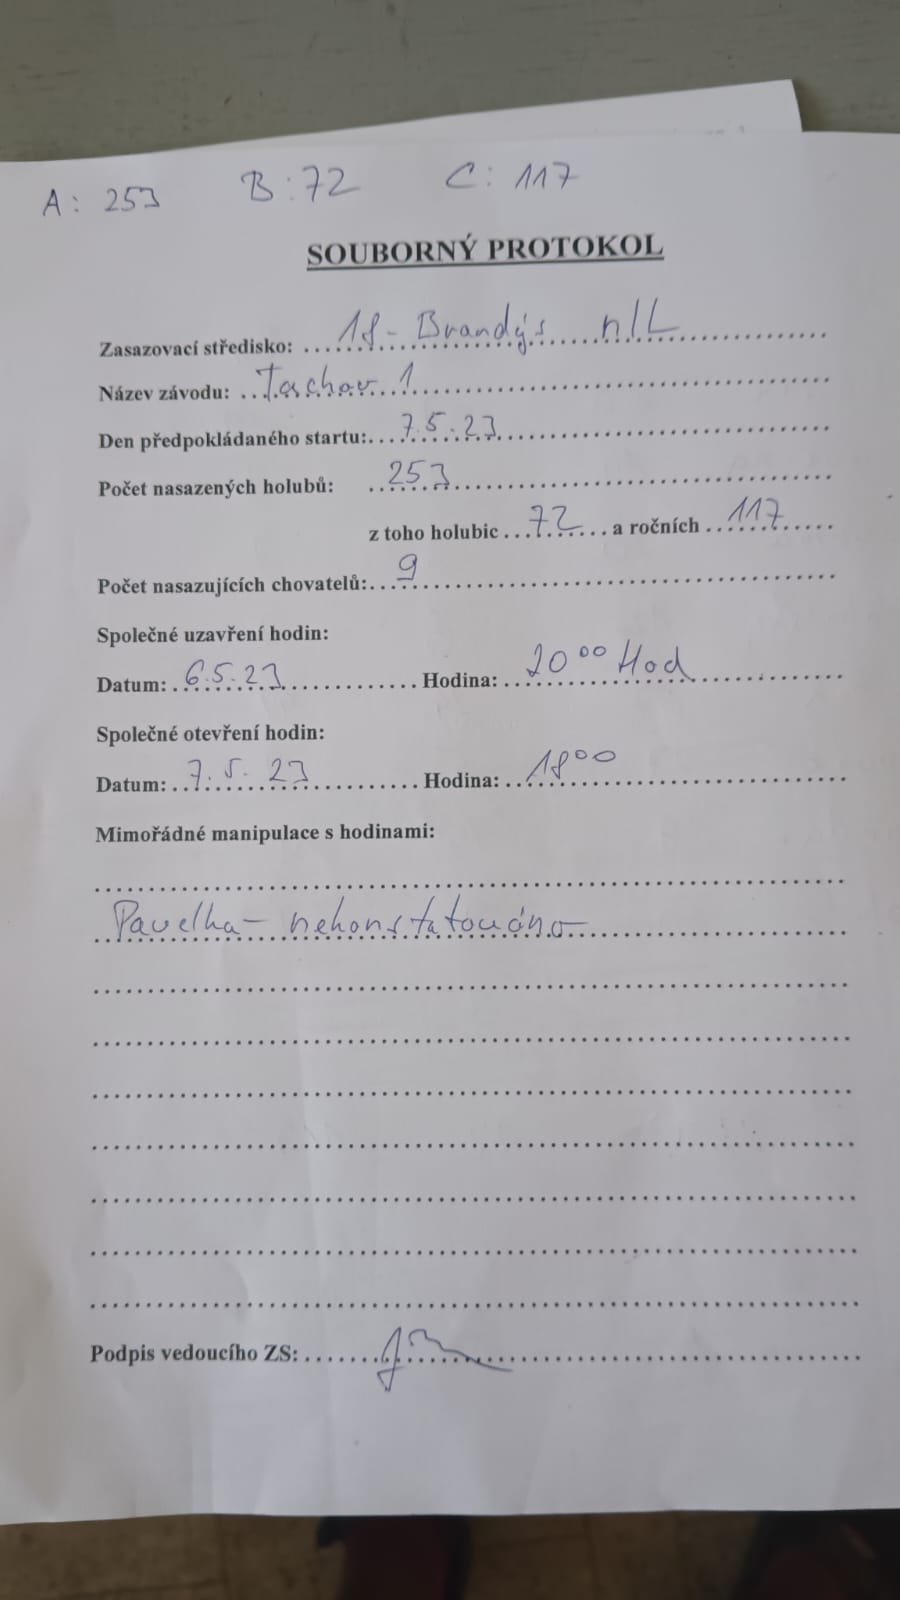 A: 253 B: 72 C: 117
SOUBORNÝ PROTOKOL
Zasazovací středisko: 18 - Brandýs n/L
Název závodu: Tachov 1
Den předpokládaného startu: 7.5.23
Počet nasazených holubů: 253
z toho holubic 72 a ročních 117
Počet nasazujících chovatelů: 9
Společné uzavření hodin:
Datum: 6.5.23 Hodina: 20 00 Hod
Společné otevření hodin:
Datum: 7.5.23 Hodina: 18 00
Mimořádné manipulace s hodinami:
Pavelka - nekonstatováno
Podpis vedoucího ZS: